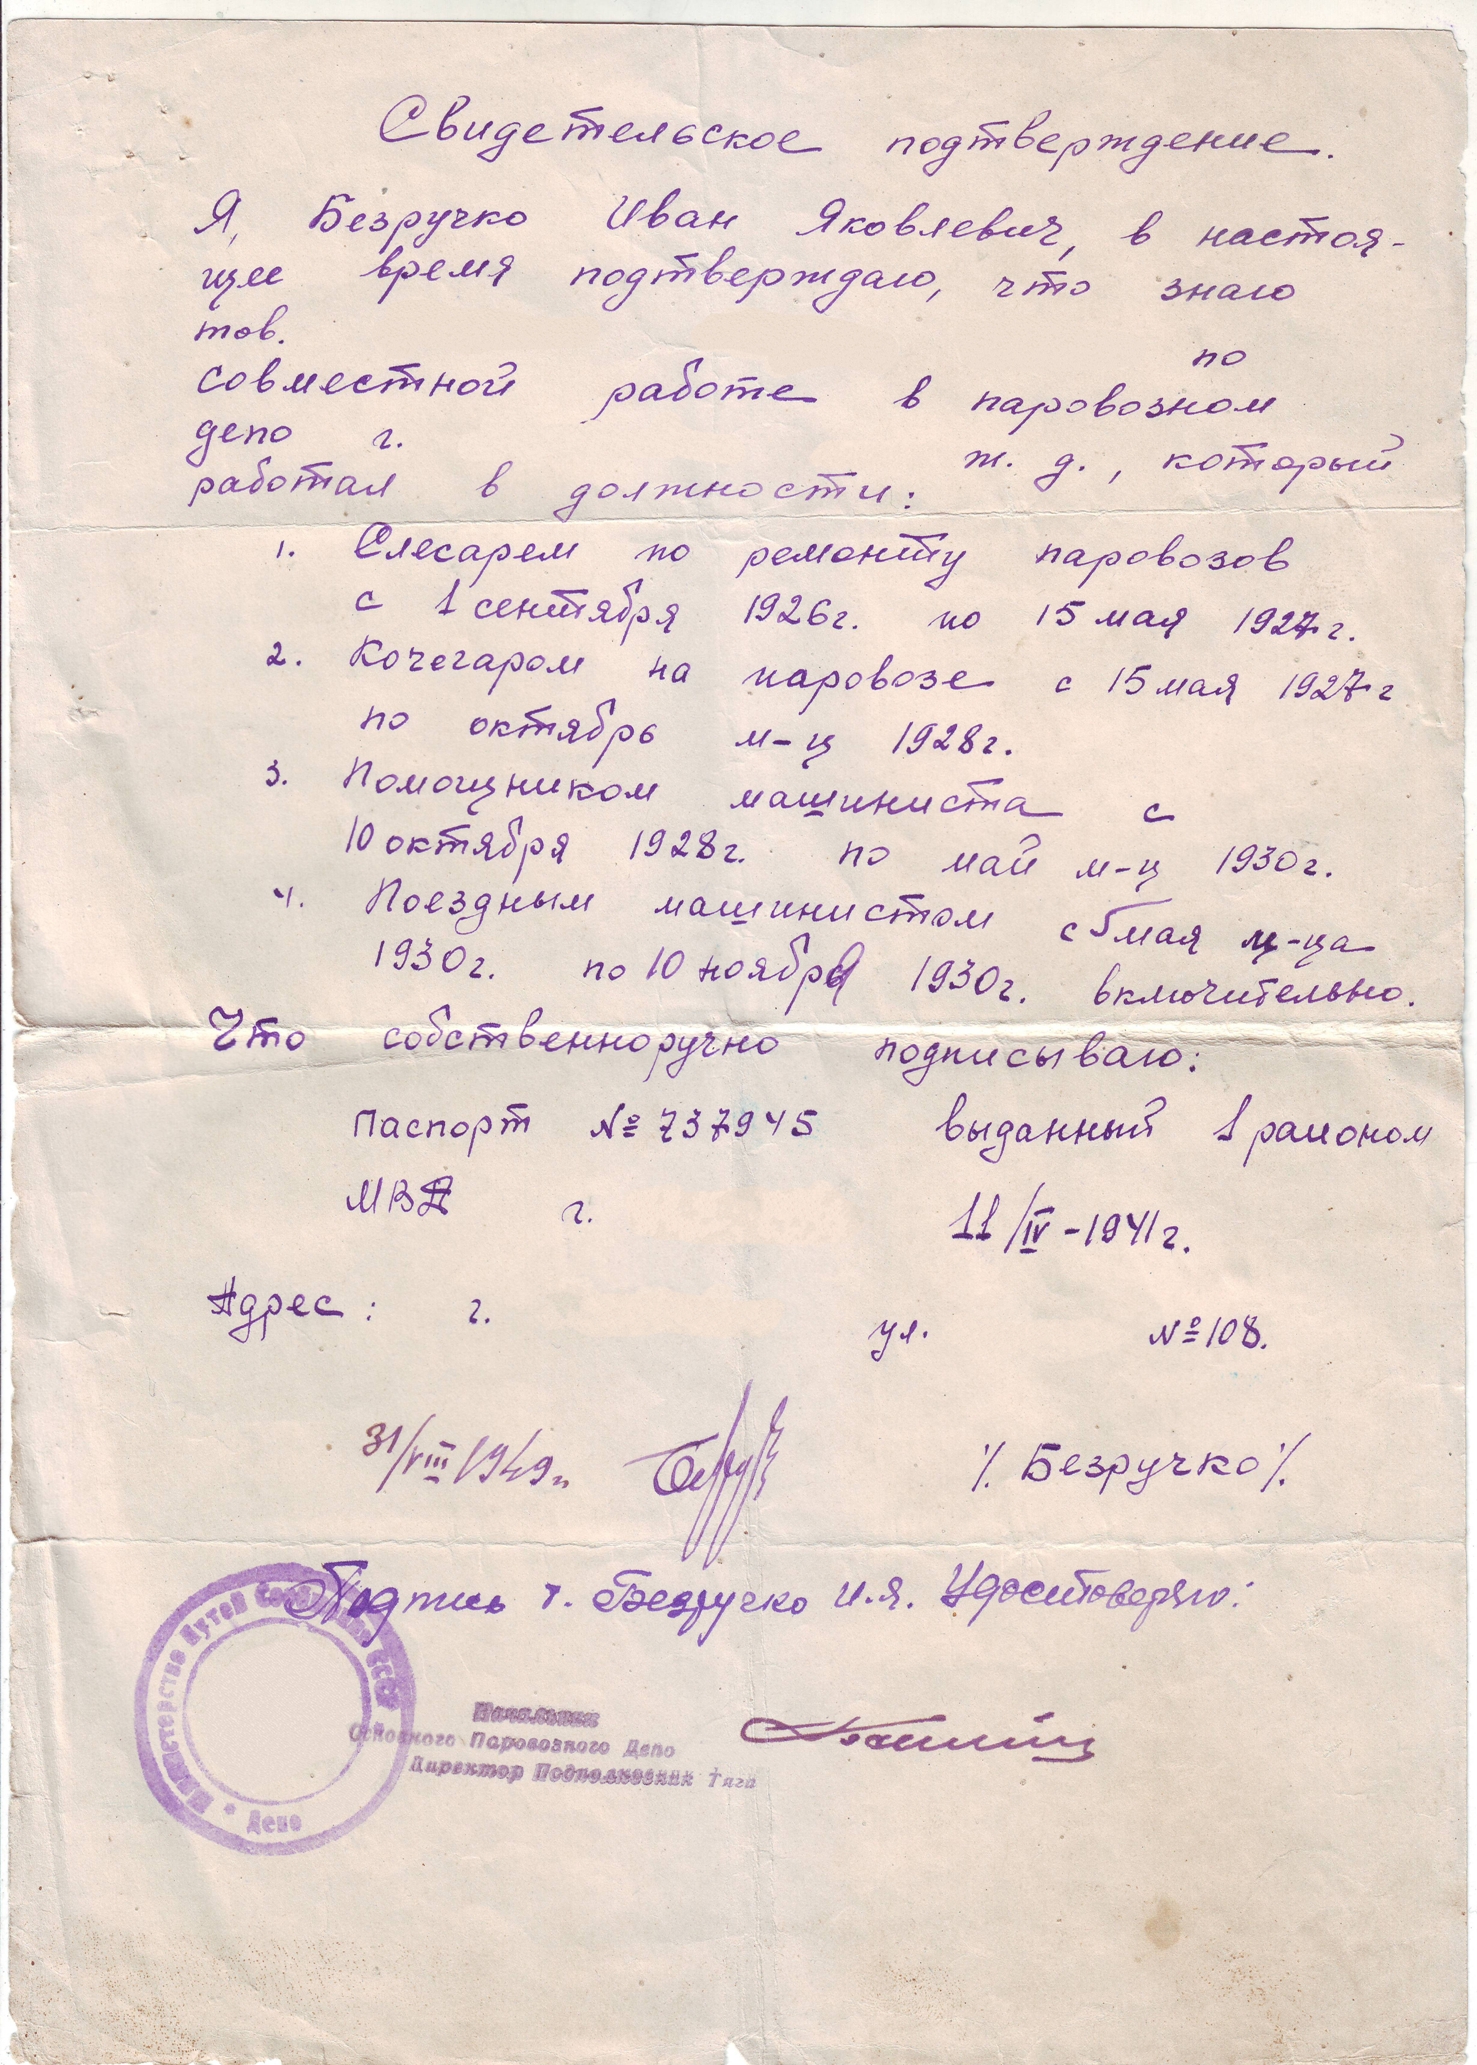 Свидетельское подтверждение.
Я, Безручко Иван Яковлевич, в настоя-
щее время подтверждаю, что знаю
тов.
по
совместной работе в паровозном
депо г. ж. д., который
работал в должности:
1. Слесарем по ремонту паровозов
с 1 сентября 1926г. по 15 мая 1927г.
2. Кочегаром на паровозе с 15 мая 1927г
по октябрь м-ц 1928г.
3. Помощником машиниста с
10 октября 1928г. по май м-ц 1930г.
4. Поездным машинистом с 5 мая м-ца
1930г. по 10 ноября 1930г. включительно.
Что собственноручно подписываю:
Паспорт № 737945 выданный 1 районом
МВД г. 11/IV-1941г.
Адрес: г. ул. № 108.
31/VIII 1949г. /. Безручко /.
Подпись т. Безручко И.Я. Удостоверяю:
Министерство Путей Сообщения СССР
Начальник
Основного Паровозного Депо
Директор Подполковник Тяги
Депо